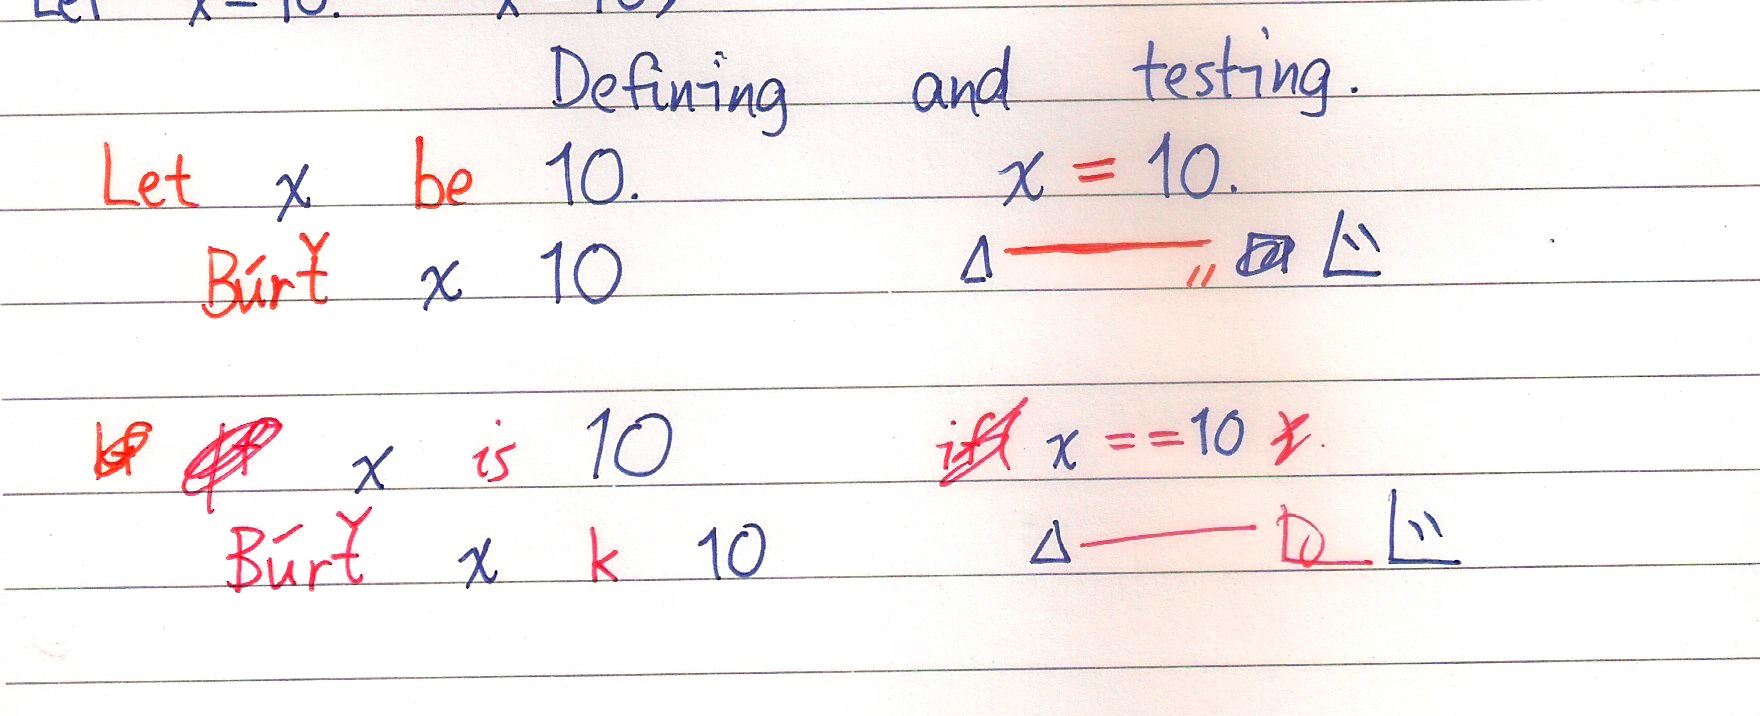 Defining and testing.
Let x be 10. x = 10.
Búrť x 10
x is 10 x == 10
Búrť x k 10